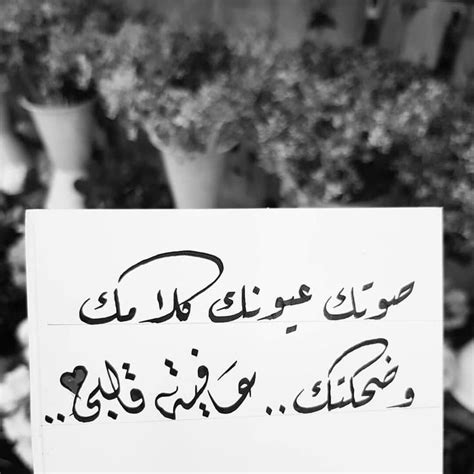 صوتك عيونك كلامك
وضحكتك.. عَافية قلبي..